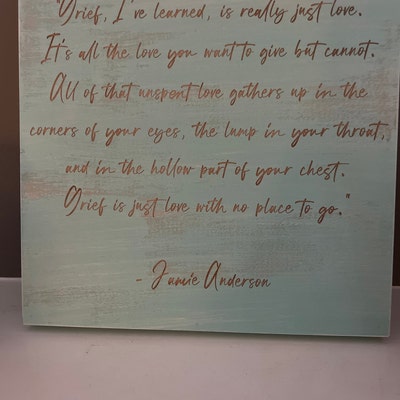 "Grief, I've learned, is really just love.
It's all the love you want to give but cannot.
All of that unspent love gathers up in the
corners of your eyes, the lump in your throat,
and in the hollow part of your chest.
Grief is just love with no place to go."
- Jamie Anderson